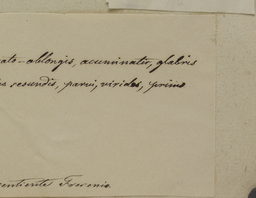 ato-oblongis, acuminatis, glabris
is secundis, parvi, virides, primo
sentiente Fresenio